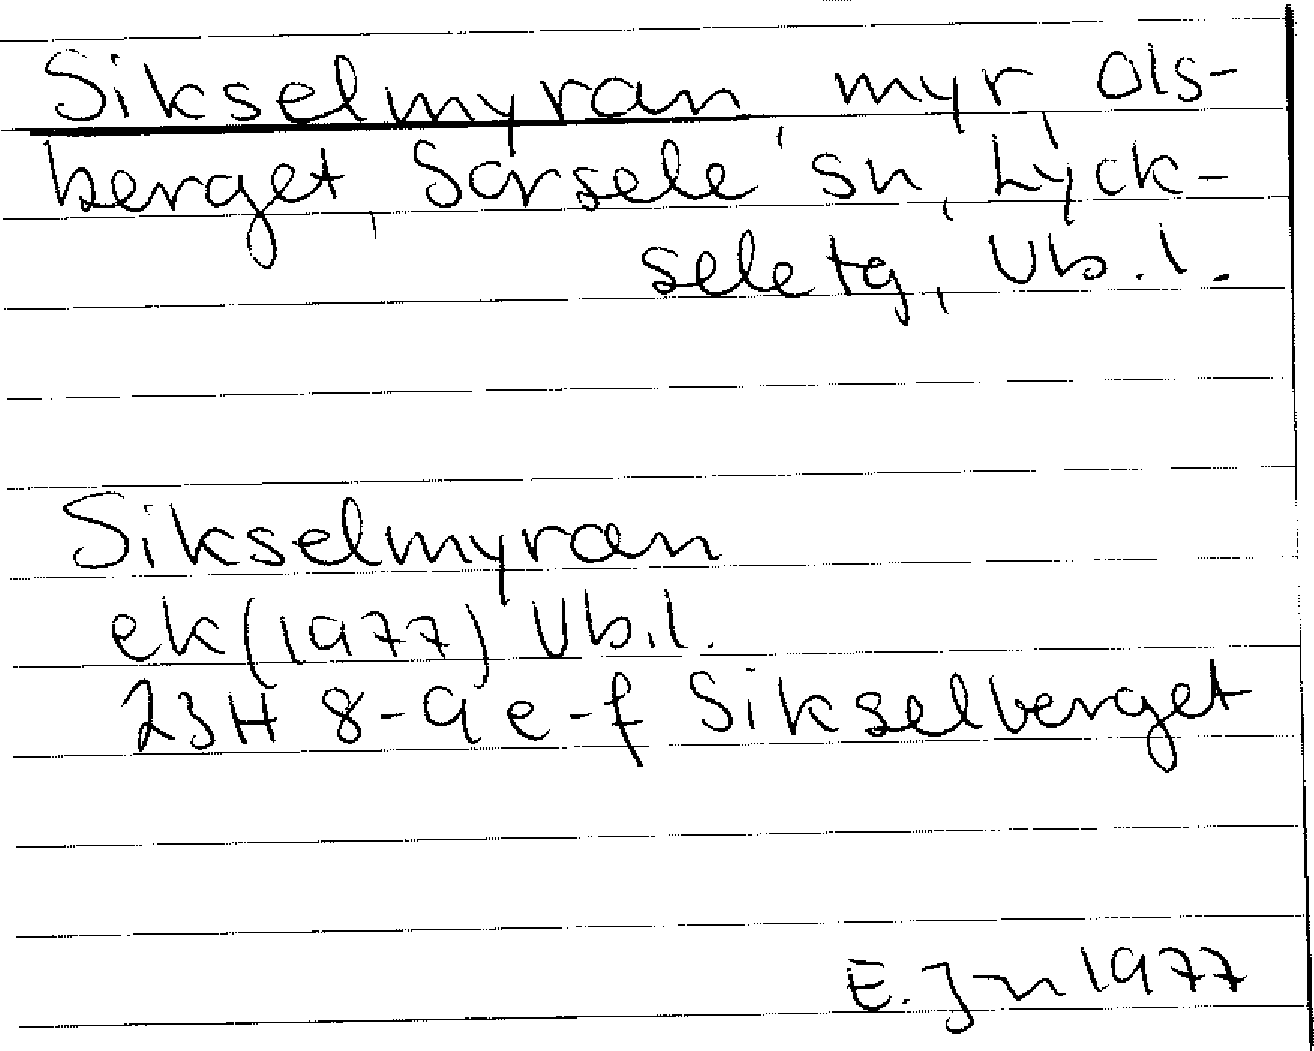 Sikselmyran myr Ols-
berget, Sorsele sn, Lyck-
sele tg, Vb. l.
Sikselmyran
ek (1977) Vb. l.
23H 8-9 e-f Sikselberget
E. Jn 1977